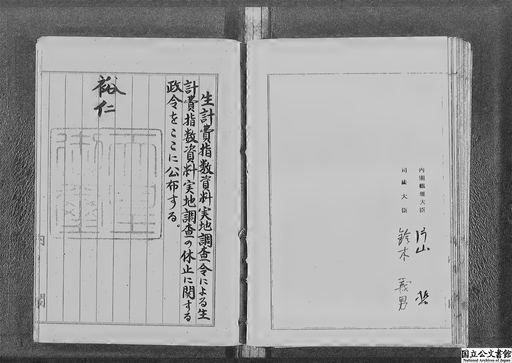 生計費指数資料実地調査令による生
計費指数資料実地調査の休止に関する
政令をここに公布する。
裕仁
内閣
内閣総理大臣 片山 哲
司法大臣 鈴木 義男
国立公文書館
National Archives of Japan